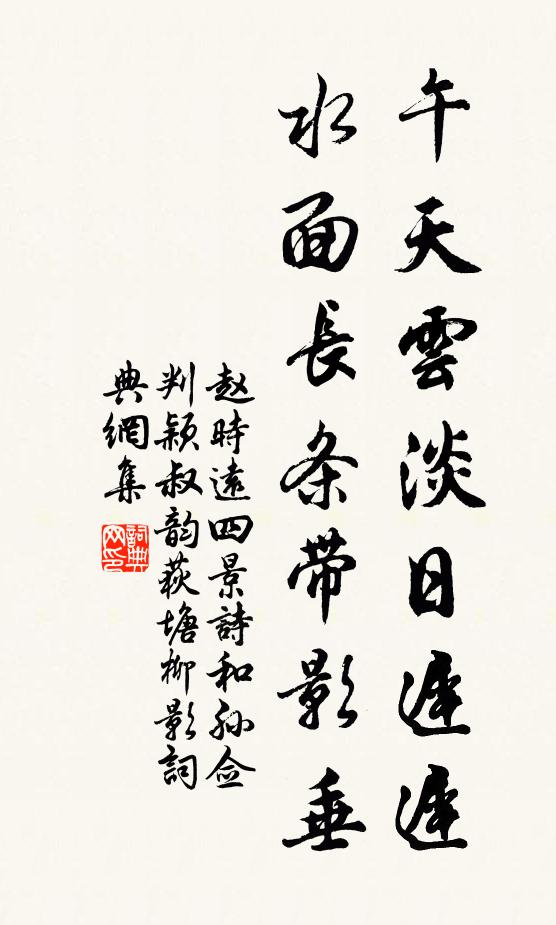 午天雲淡日遲遲
水面長条帶影垂
赵時遠四景詩和孙佥
判颖叔韵荻塘柳影詞
典網集
詞典
网印